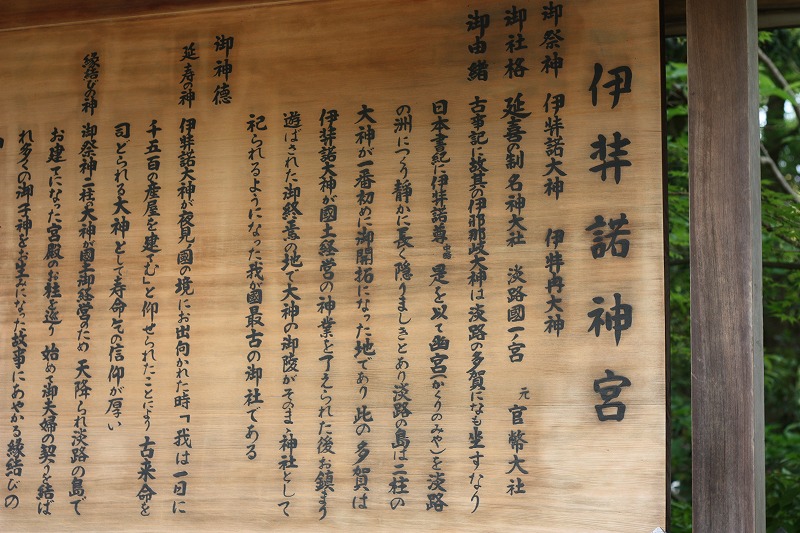 伊弉諾神宮
御祭神 伊弉諾大神 伊弉冉大神
御社格 延喜の制名神大社 淡路國一ノ宮 元 官幣大社
御由緒 古事記に故其の伊耶那岐大神は淡路の多賀になも坐すなり
日本書紀に伊弉諾尊 是を以て幽宮(かくりのみや)を淡路
の洲につくり静かに長く隠りましきとあり淡路の島は二柱の
大神が一番初めに御開拓になった地であり此の多賀は
伊弉諾大神が國土経営の神業を了えられた後お鎮まり
遊ばされた御終焉の地で大神の御陵がそのまゝ神社として
祀られるようになった我が國最古の御社である
御神徳
延寿の神 伊弉諾大神が夜見の國の境にお出向かれた時「我は一日に
千五百の産屋を建てむ」と仰せられたことにより 古来命を
司どられる大神として寿命その信仰が厚い
縁結びの神 御祭神二柱の大神が國土御経営のため 天降られ淡路の島で
お建てになった宮殿のお柱を巡り 始めて御夫婦の契りを結ば
れ多くの御子神をお生みになった故事にあやかる縁結びの